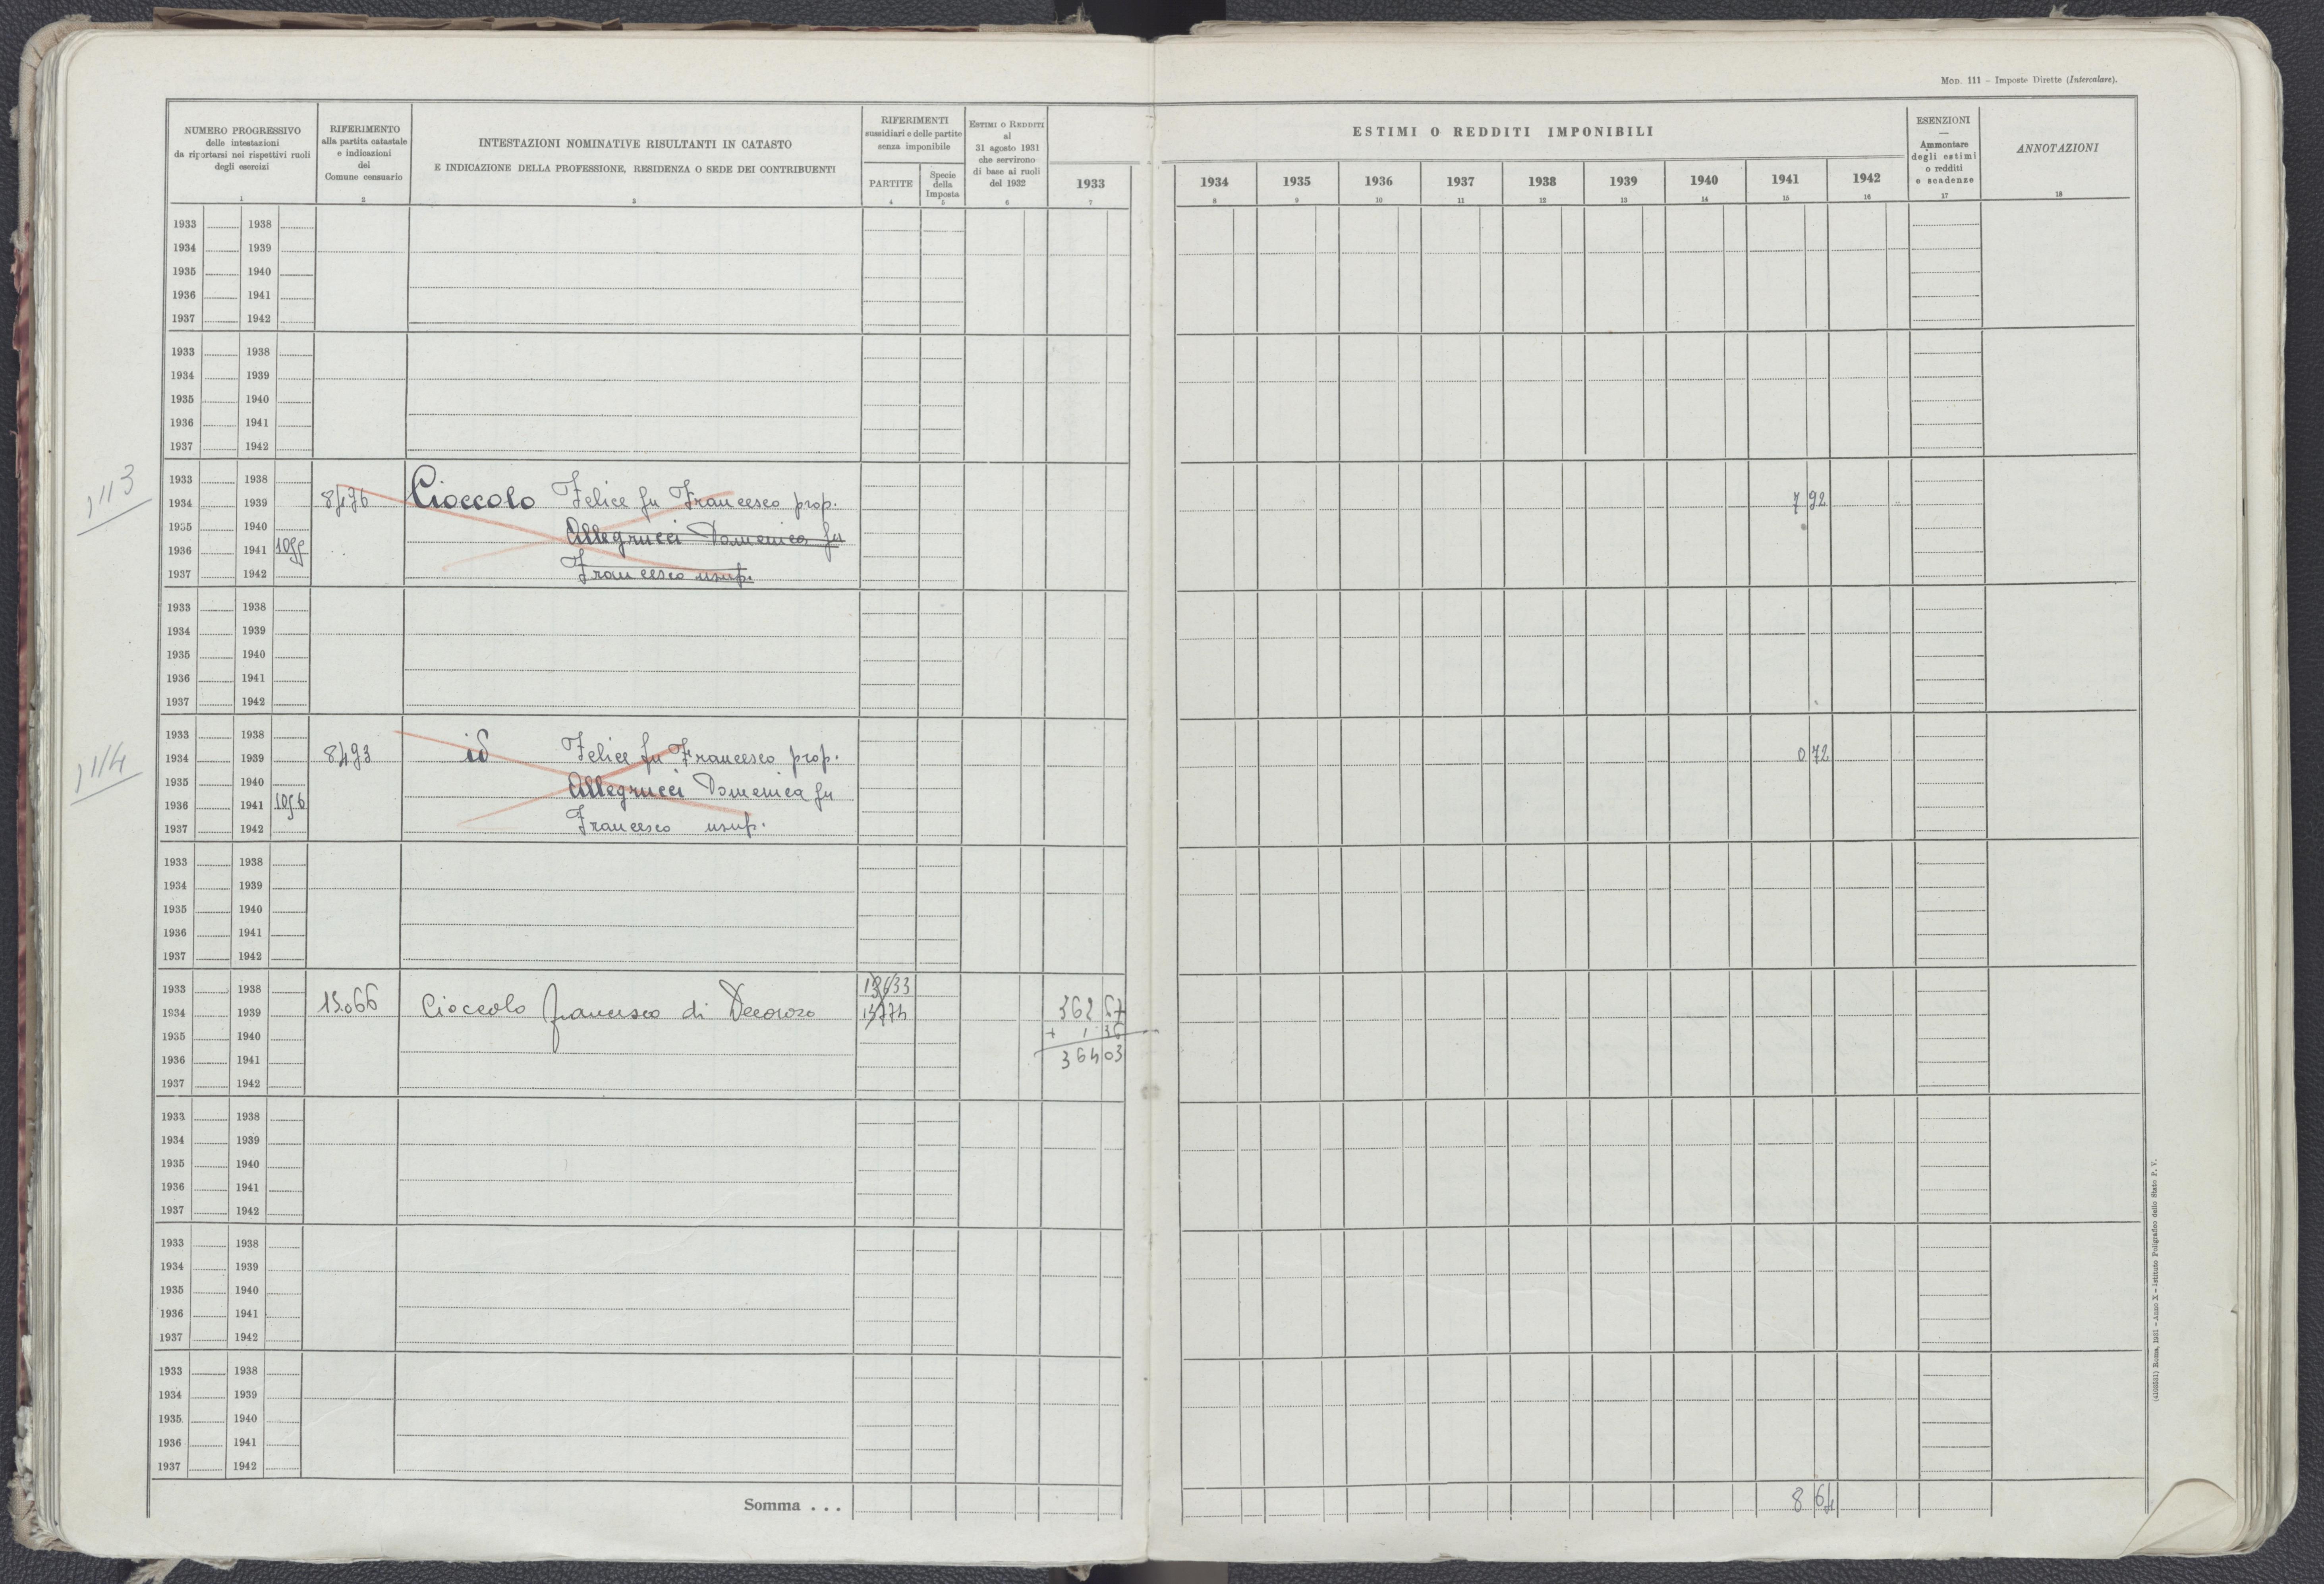 MOD. 111 - Imposte Dirette (Intercalare).
NUMERO PROGRESSIVO
delle intestazioni
da riportarsi nei rispettivi ruoli
degli esercizi
1
RIFERIMENTO
alla partita catastale
e indicazioni
del
Comune censuario
2
INTESTAZIONI NOMINATIVE RISULTANTI IN CATASTO
E INDICAZIONE DELLA PROFESSIONE, RESIDENZA O SEDE DEI CONTRIBUENTI
3
RIFERIMENTI
sussidiari e delle partite
senza imponibile
PARTITE
4
Specie
della
Imposta
5
ESTIMI O REDDITI
al
31 agosto 1931
che servirono
di base ai ruoli
del 1932
6
1933
7
ESTIMI O REDDITI IMPONIBILI
1934 1935 1936 1937 1938 1939 1940 1941 1942
8 9 10 11 12 13 14 15 16
ESENZIONI
—
Ammontare
degli estimi
o redditi
e scadenze
17
ANNOTAZIONI
18
1933 1938
1934 1939
1935 1940
1936 1941
1937 1942
1933 1938
1934 1939
1935 1940
1936 1941
1937 1942
1113
1933 1938
1934 1939 8476 Cioccolo Felice fu Francesco prop. 7 92
1935 1940 Allegrucci Domenica fu
1936 1941
1937 1942 Francesco usuf.
1933 1938
1934 1939
1935 1940
1936 1941
1937 1942
1114
1933 1938
1934 1939 8493 id Felice fu Francesco prop. 0 72
1935 1940 Allegrucci Domenica fu
1936 1941 1096
1937 1942 Francesco usuf.
1933 1938
1934 1939
1935 1940
1936 1941
1937 1942
1933 1938 13633
1934 1939 13066 Cioccolo Francesco di Decoroso 13774 362 67
1935 1940 + 1 36
1936 1941 364 03
1937 1942
1933 1938
1934 1939
1935 1940
1936 1941
1937 1942
1933 1938
1934 1939
1935 1940
1936 1941
1937 1942
1933 1938
1934 1939
1935 1940
1936 1941
1937 1942
Somma . . . 8 64
Roma, 1931 - Anno X - Istituto Poligrafico dello Stato P. V.